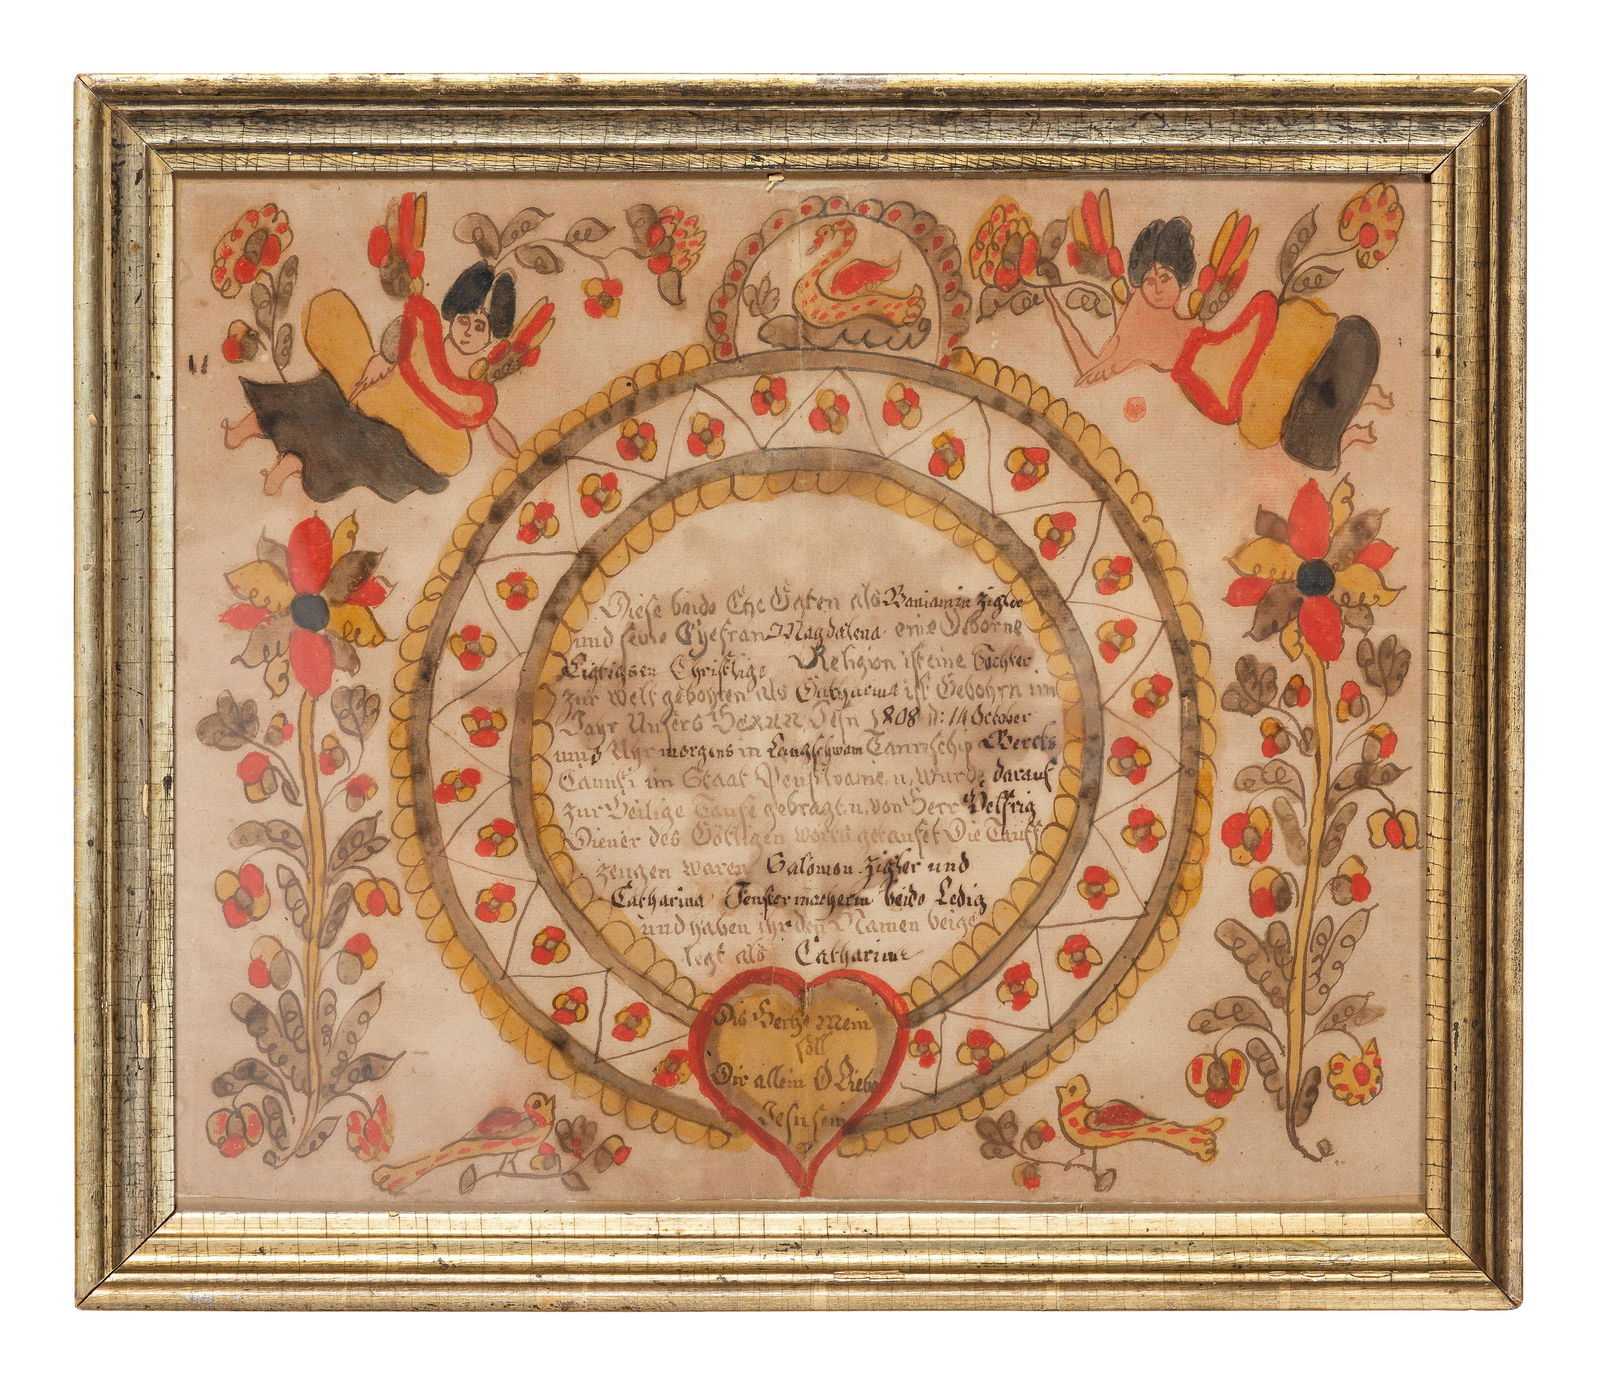 Diese beide Ehe Gaten als Baniamin Zigler
und seine Ehefrau Magdalena eine Geborne
Christlige Religion ist eine Tochter
zur welt gebohren als Catharina ist Gebohrn im
Jahr Unsers Herrn Jesu 1808 d: 14 October
um Uhr morgens in Langschwam Taunschip Bercks
Caunti im Staat Pensilvanien u, wurde darauf
zur Heilige Taufe gebragt u, von Herr Helfrig
Diener des Göttligen worts getauft Die Tauff
zeugen waren Salomon Zigler und
Catharina Fenstermacherin beide Ledig
und haben Ihr den Namen beige
legt als Catharina
Dis Hertze Mein
soll
Dir allein O Liebe
Jesu sein